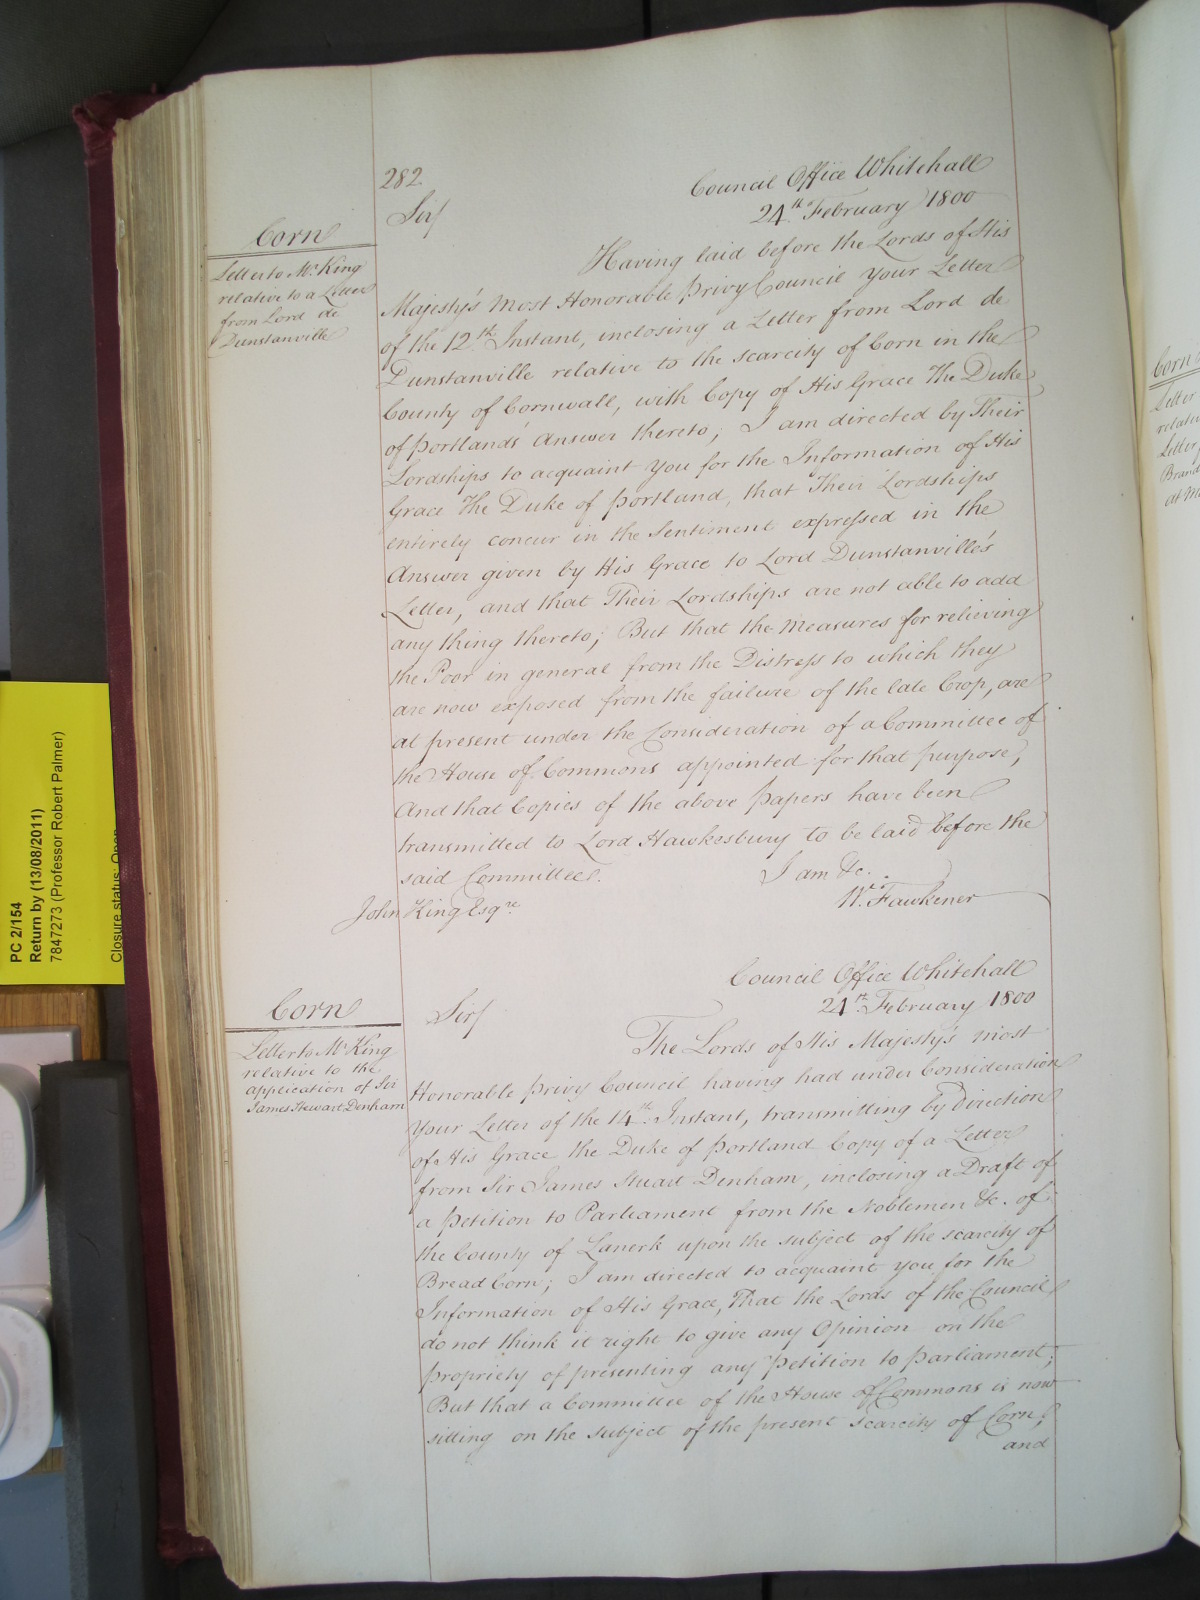 282.
Council Office Whitehall
24th. February 1800
Sir/
Corn
Letter to Mr. King
relative to a Letter
from Lord de
Dunstanville
Having laid before the Lords of His
Majesty's most Honorable Privy Council your Letter
of the 12th. Instant, inclosing a Letter from Lord de
Dunstanville relative to the scarcity of Corn in the
County of Cornwall, with Copy of His Grace The Duke
of Portlands' Answer thereto; I am directed by Their
Lordships to acquaint you for the Information of His
Grace The Duke of Portland, that Their Lordships
entirely concur in the Sentiment expressed in the
Answer given by His Grace to Lord Dunstanville's
Letter, and that Their Lordships are not able to add
any thing thereto; But that the Measures for relieving
the Poor in general from the Distress to which they
are now exposed from the failure of the late Crop, are
at present under the Consideration of a Committee of
the House of Commons appointed for that purpose,
And that Copies of the above Papers have been
transmitted to Lord Hawkesbury to be laid before the
said Committee.
I am &c.
John King Esqre.
W. Fawkener
Council Office Whitehall
24th. February 1800
Corn
Letter to Mr. King
relative to the
application of Sir
James Stewart Denham
Sir/
The Lords of His Majesty's most
Honorable Privy Council having had under Consideration
Your Letter of the 14th. Instant, transmitting by Direction
of His Grace the Duke of Portland Copy of a Letter
from Sir James Stuart Denham, inclosing a Draft of
a Petition to Parliament from the Noblemen &c. of
the County of Lanerk upon the subject of the scarcity of
Bread Corn; I am directed to acquaint you for the
Information of His Grace, That the Lords of the Council
do not think it right to give any Opinion on the
propriety of presenting any Petition to Parliament;
But that a Committee of the House of Commons is now
sitting on the subject of the present scarcity of Corn;
and
PC 2/154
Return by (13/08/2011)
7847273 (Professor Robert Palmer)
Closure status: Open
Corn
Letter
Letter